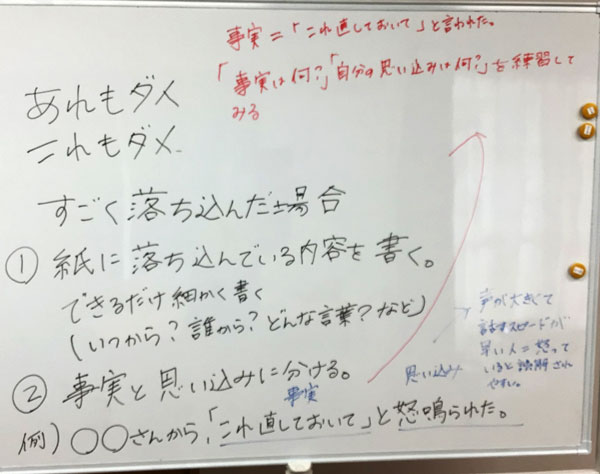 事実=「これ直しておいて」と言われた。
「事実は何?」「自分の思い込みは何?」を練習して
みる
あれもダメ
これもダメ
すごく落ち込んだ場合
① 紙に落ち込んでいる内容を書く。
できるだけ細かく書く
(いつから?誰から?どんな言葉?など)
② 事実と思い込みに分ける。
事実
思い込み
声が大きくて
話すスピードが
早い人は怒って
いると誤解され
やすい。
例)○○さんから、「これ直しておいて」と怒鳴られた。